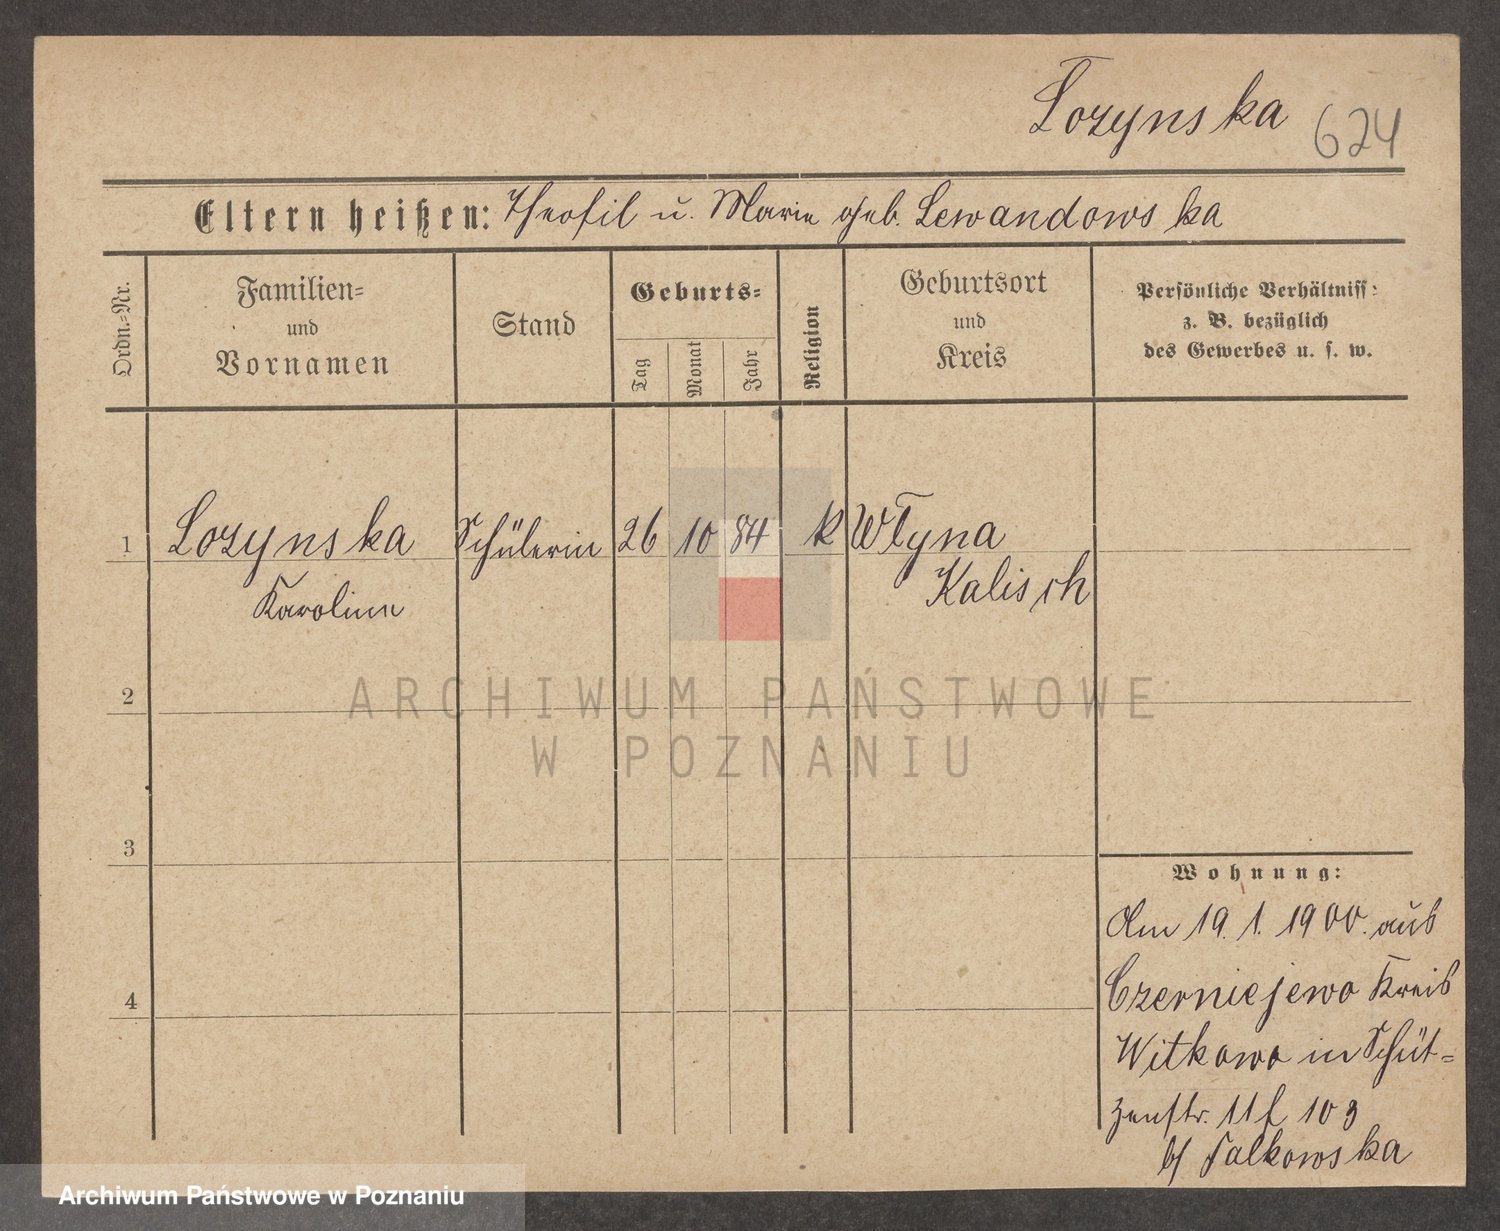 Łozynska 624
Eltern heißen: Theofil u. Marie geb. Lewandowska
Ordn.-Nr.
Familien-
und
Vornamen
Stand
Geburts-
Tag
Monat
Jahr
Religion
Geburtsort
und
Kreis
Persönliche Verhältniss:
z. B. bezüglich
des Gewerbes u. s. w.
1 Lozynska Schülerin 26 10 84 k Włyna
Karoline Kalisch
2
ARCHIWUM PAŃSTWOWE
W POZNANIU
3
Wohnung:
Am 19. 1. 1900. aus
Czerniejewo Kreis
4
Witkowo in Schüt-
zenstr. 11
b/ Falkowska
Archiwum Państwowe w Poznaniu